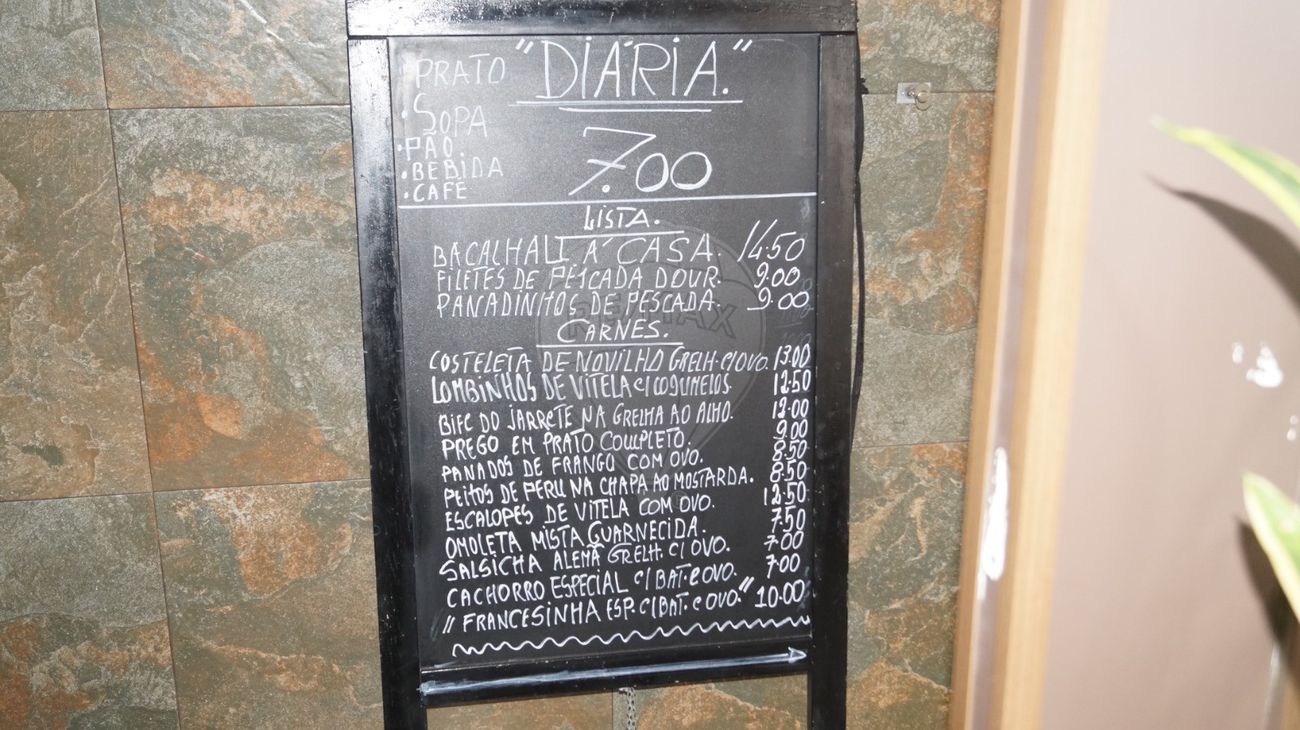 PRATO "DIÁRIA."
• SOPA
• PÃO.
• BEBIDA
• CAFE
7.00
LISTA.
BACALHAU Á CASA. 14.50
FILETES DE PESCADA DOUR. 9.00
PANADINHOS DE PESCADA. 9.00
CARNES.
COSTELETA DE NOVILHO GRELH. C/OVO. 13.00
LOMBINHOS DE VITELA C/ COGUMELOS 12.50
BIFE DO JARRETE NA GRELHA AO ALHO. 12.00
PREGO EM PRATO COMPLETO. 9.00
PANADOS DE FRANGO COM OVO. 8.50
PEITOS DE PERU NA CHAPA AO MOSTARDA. 8.50
ESCALOPES DE VITELA COM OVO. 12.50
OMOLETA MISTA GUARNECIDA. 7.50
SALSICHA ALEMÃ GRELH. C/ OVO. 7.00
CACHORRO ESPECIAL C/ BAT. e OVO. 7.00
"FRANCESINHA ESP. C/BAT. e OVO." 10.00
RE/MAX